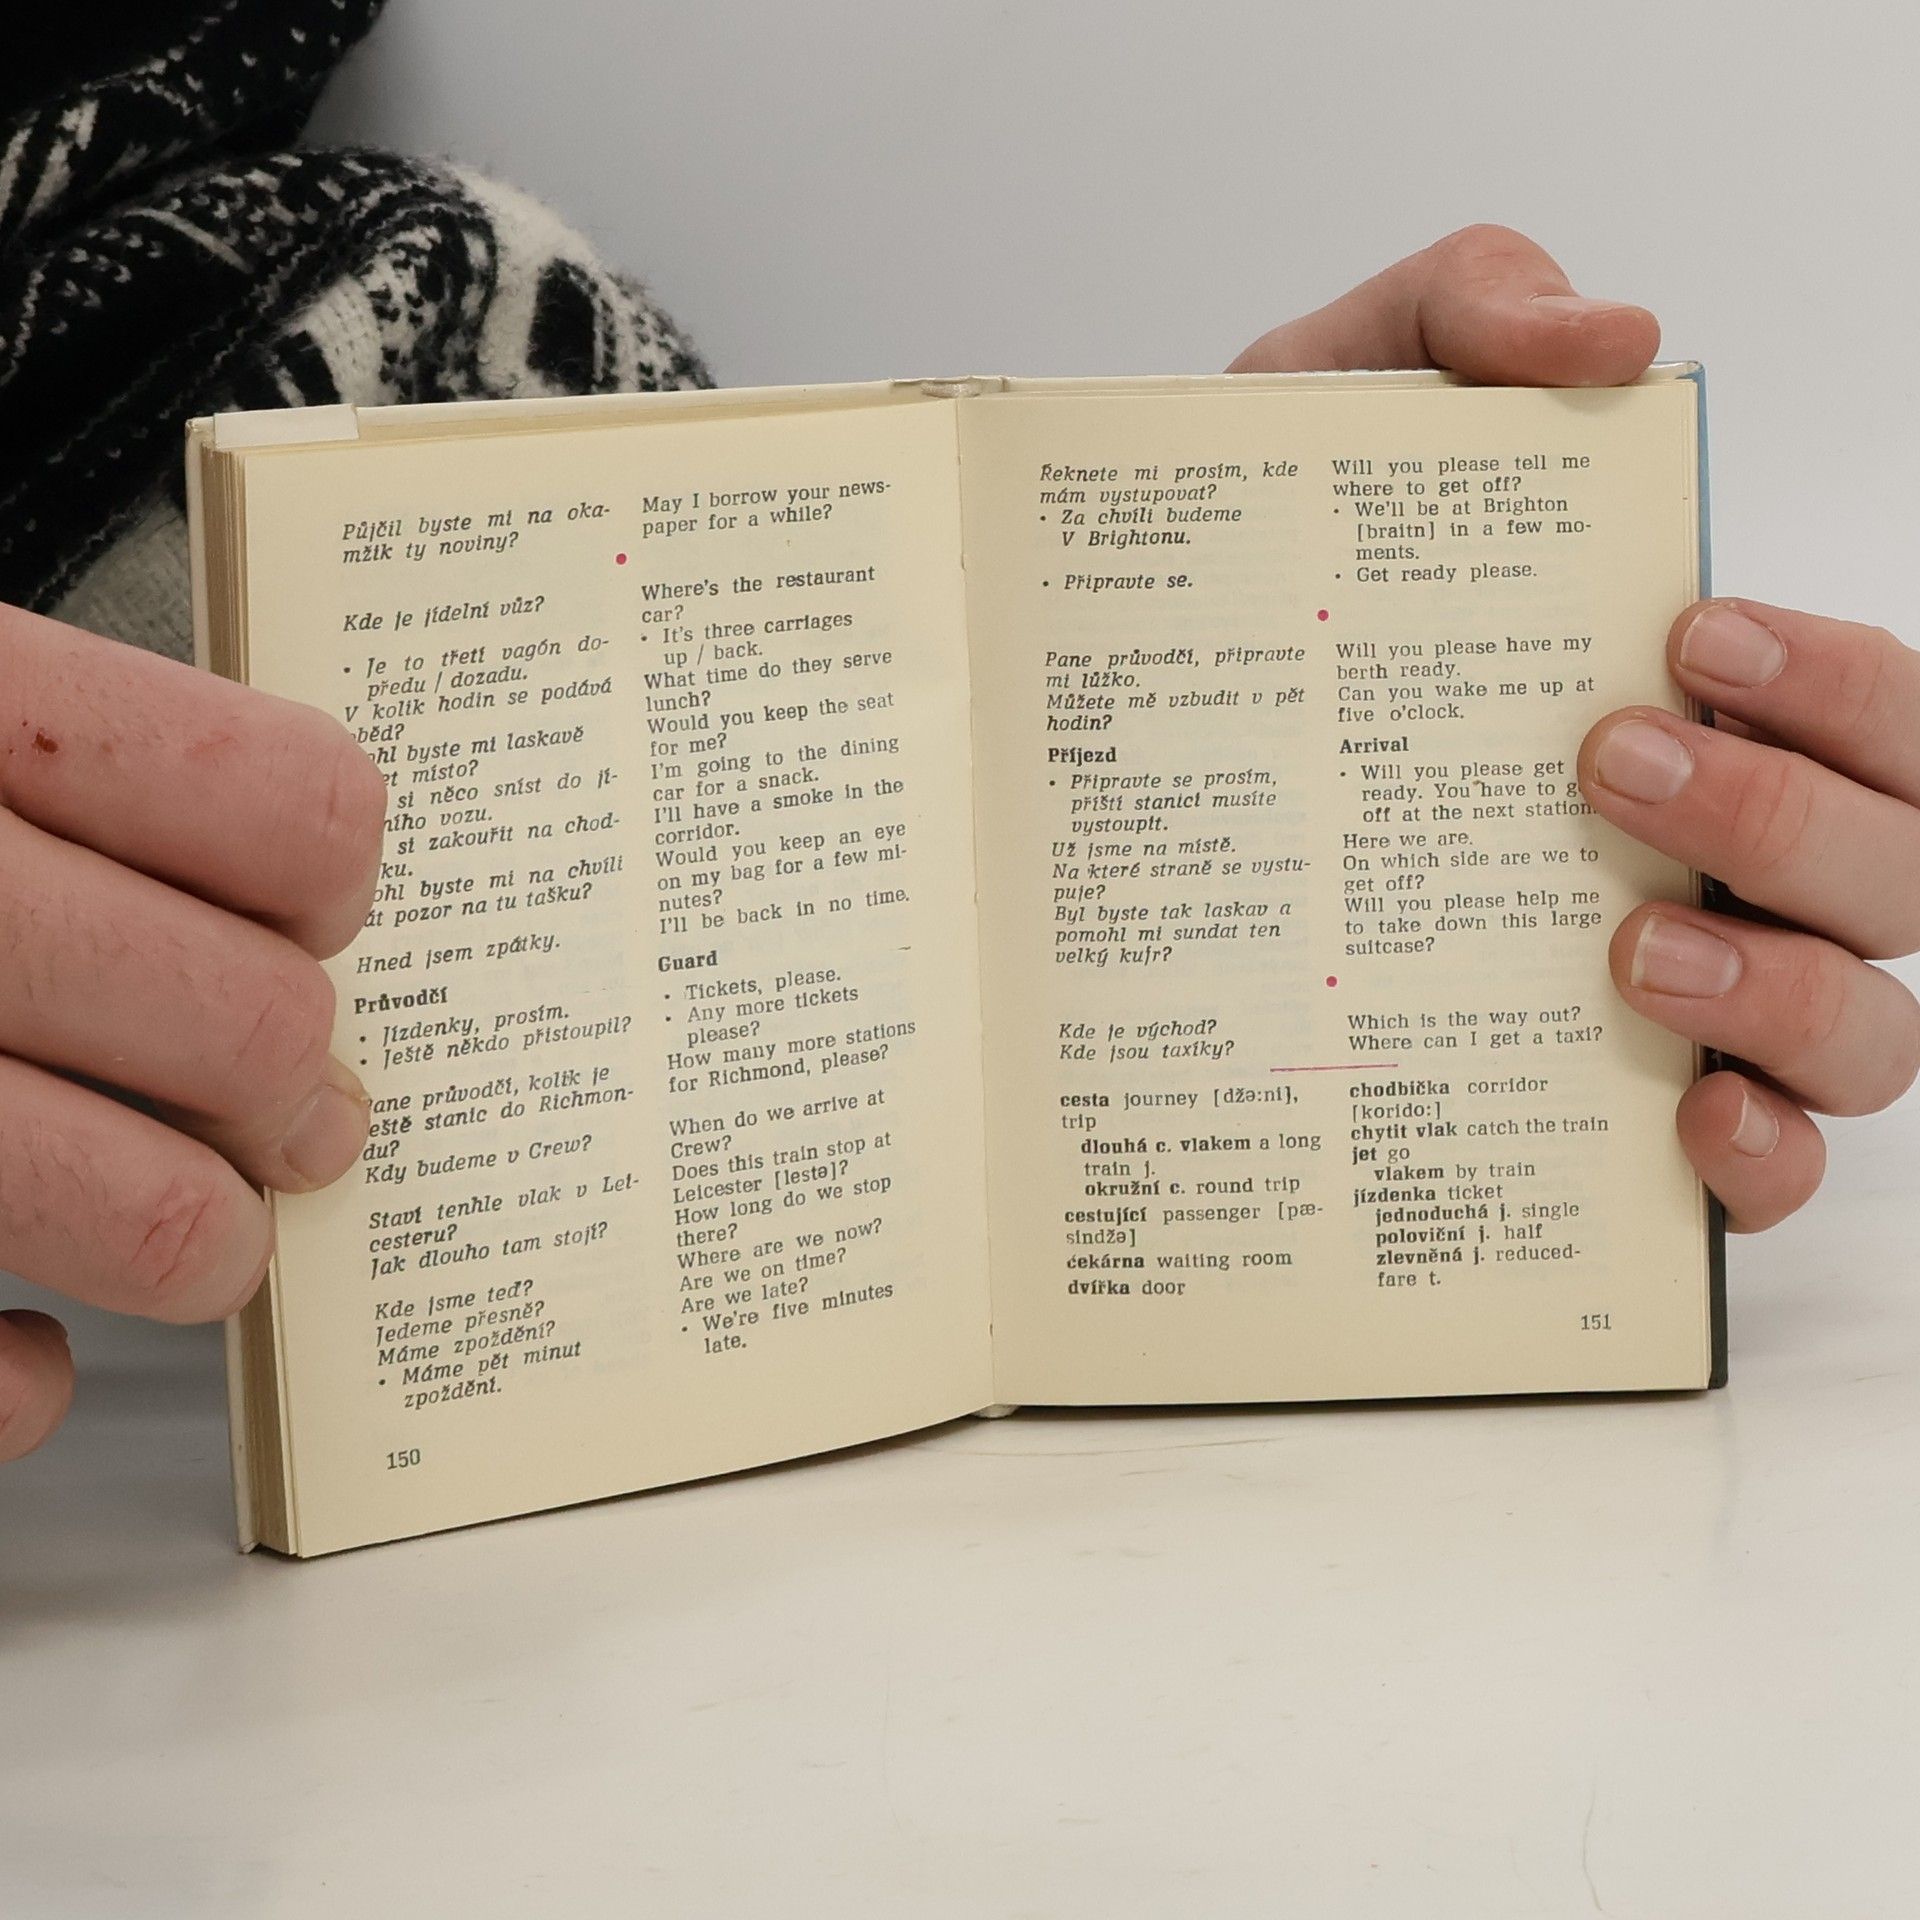 Půjčil byste mi na oka-
mžik ty noviny?
Kde je jídelní vůz?
• Je to třetí vagón do-
předu / dozadu.
V kolik hodin se podává
byste mi laskavě
místo?
si něco sníst do jí-
vozu.
si zakouřit na chod-
byste mi na chvíli
pozor na tu tašku?
Hned jsem zpátky.
Průvodčí
• Jízdenky, prosím.
• Ještě někdo přistoupil?
průvodčí, kolik je
stanic do Richmon-
du?
Kdy budeme v Crew?
Staví tenhle vlak v Lei-
cesteru?
Jak dlouho tam stojí?
Kde jsme teď?
Jedeme přesně?
Máme zpoždění?
• Máme pět minut
zpoždění.
150
May I borrow your news-
paper for a while?
Where's the restaurant
car?
• It's three carriages
up / back.
What time do they serve
lunch?
Would you keep the seat
for me?
I'm going to the dining
car for a snack.
I'll have a smoke in the
corridor.
Would you keep an eye
on my bag for a few mi-
nutes?
I'll be back in no time.
Guard
• Tickets, please.
• Any more tickets
please?
How many more stations
for Richmond, please?
When do we arrive at
Crew?
Does this train stop at
Leicester [lestə]?
How long do we stop
there?
Where are we now?
Are we on time?
Are we late?
• We're five minutes
late.
Řeknete mi prosím, kde
mám vystupovat?
• Za chvíli budeme
V Brightonu.
• Připravte se.
Pane průvodčí, připravte
mi lůžko.
Můžete mě vzbudit v pět
hodin?
Příjezd
• Připravte se prosím,
příští stanici musíte
vystoupit.
Už jsme na místě.
Na které straně se vystu-
puje?
Byl byste tak laskav a
pomohl mi sundat ten
velký kufr?
Kde je východ?
Kde jsou taxíky?
cesta journey [džə:ni],
trip
dlouhá c. vlakem a long
train j.
okružní c. round trip
cestující passenger [pæ-
sindžə]
čekárna waiting room
dvířka door
Will you please tell me
where to get off?
• We'll be at Brighton
[braitn] in a few mo-
ments.
• Get ready please.
Will you please have my
berth ready.
Can you wake me up at
five o'clock.
Arrival
• Will you please get
ready. You have to
off at the next station.
Here we are.
On which side are we to
get off?
Will you please help me
to take down this large
suitcase?
Which is the way out?
Where can I get a taxi?
chodbička corridor
[korido:]
chytit vlak catch the train
jet go
vlakem by train
jízdenka ticket
jednoduchá j. single
poloviční j. half
zlevněná j. reduced-
fare t.
151